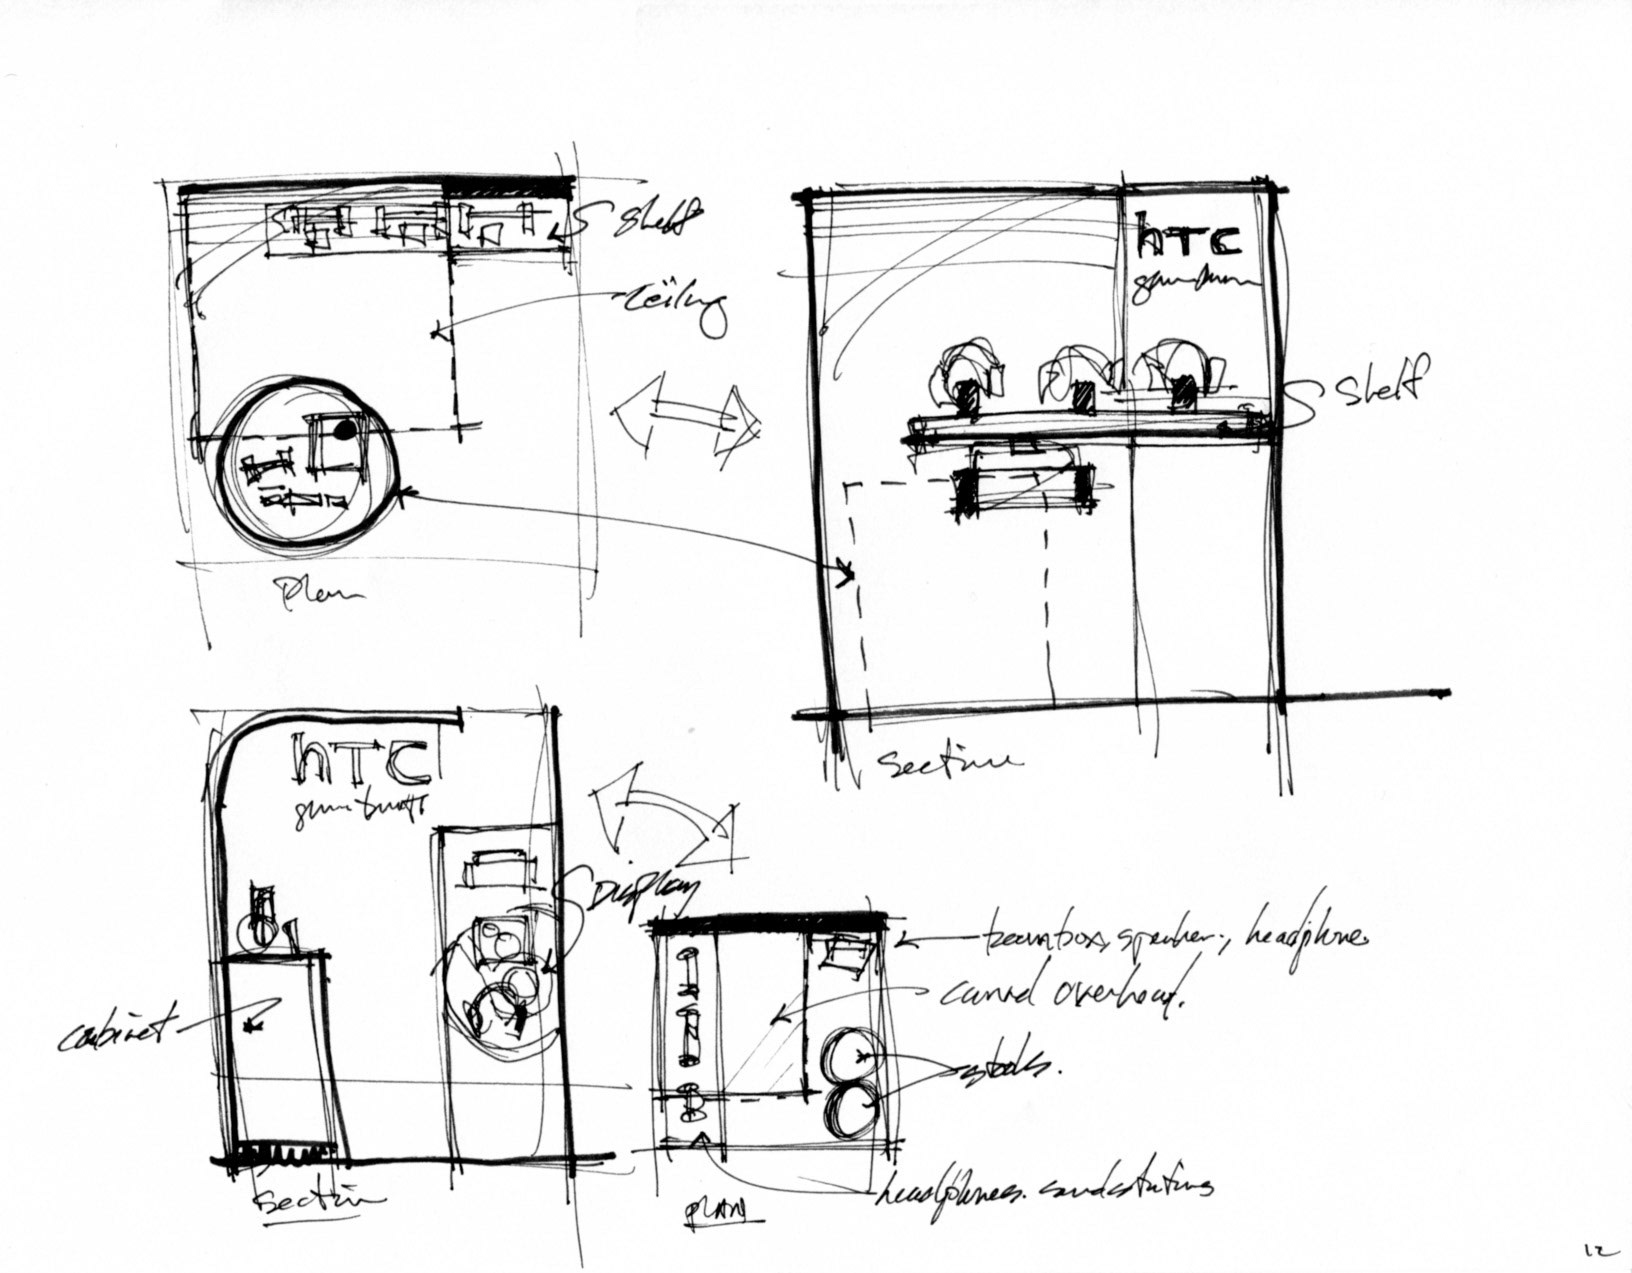 Shelf
Ceiling
Plan
hTC
Shelf
Section
hTC
Display
cabinet
Section
boombox, speaker, headphones
curved overhead.
stools.
headphones. sound stations
PLAN
12